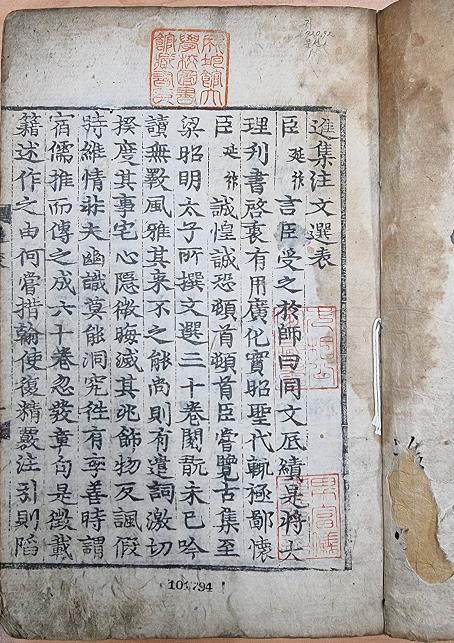 成均館大
學校圖書
館藏書印
進集注文選表
臣延祚言臣受之於師曰同文底績是將大
理刊書啓衷有用廣化實昭聖代輒極鄙懷
臣延祚誠惶誠恐頓首頓首臣嘗覽古集至
梁昭明太子所撰文選三十卷閱翫未已吟
讀無斁風雅其來不之能尚則有遣詞激切
揆度其事宅心隱微晦滅其兆飾物反諷假
時維情非夫幽識莫能洞究往有李善時謂
宿儒推而傳之成六十卷忽發章句是徵載
籍述作之由何嘗措翰使復精覈注引則陷
101794